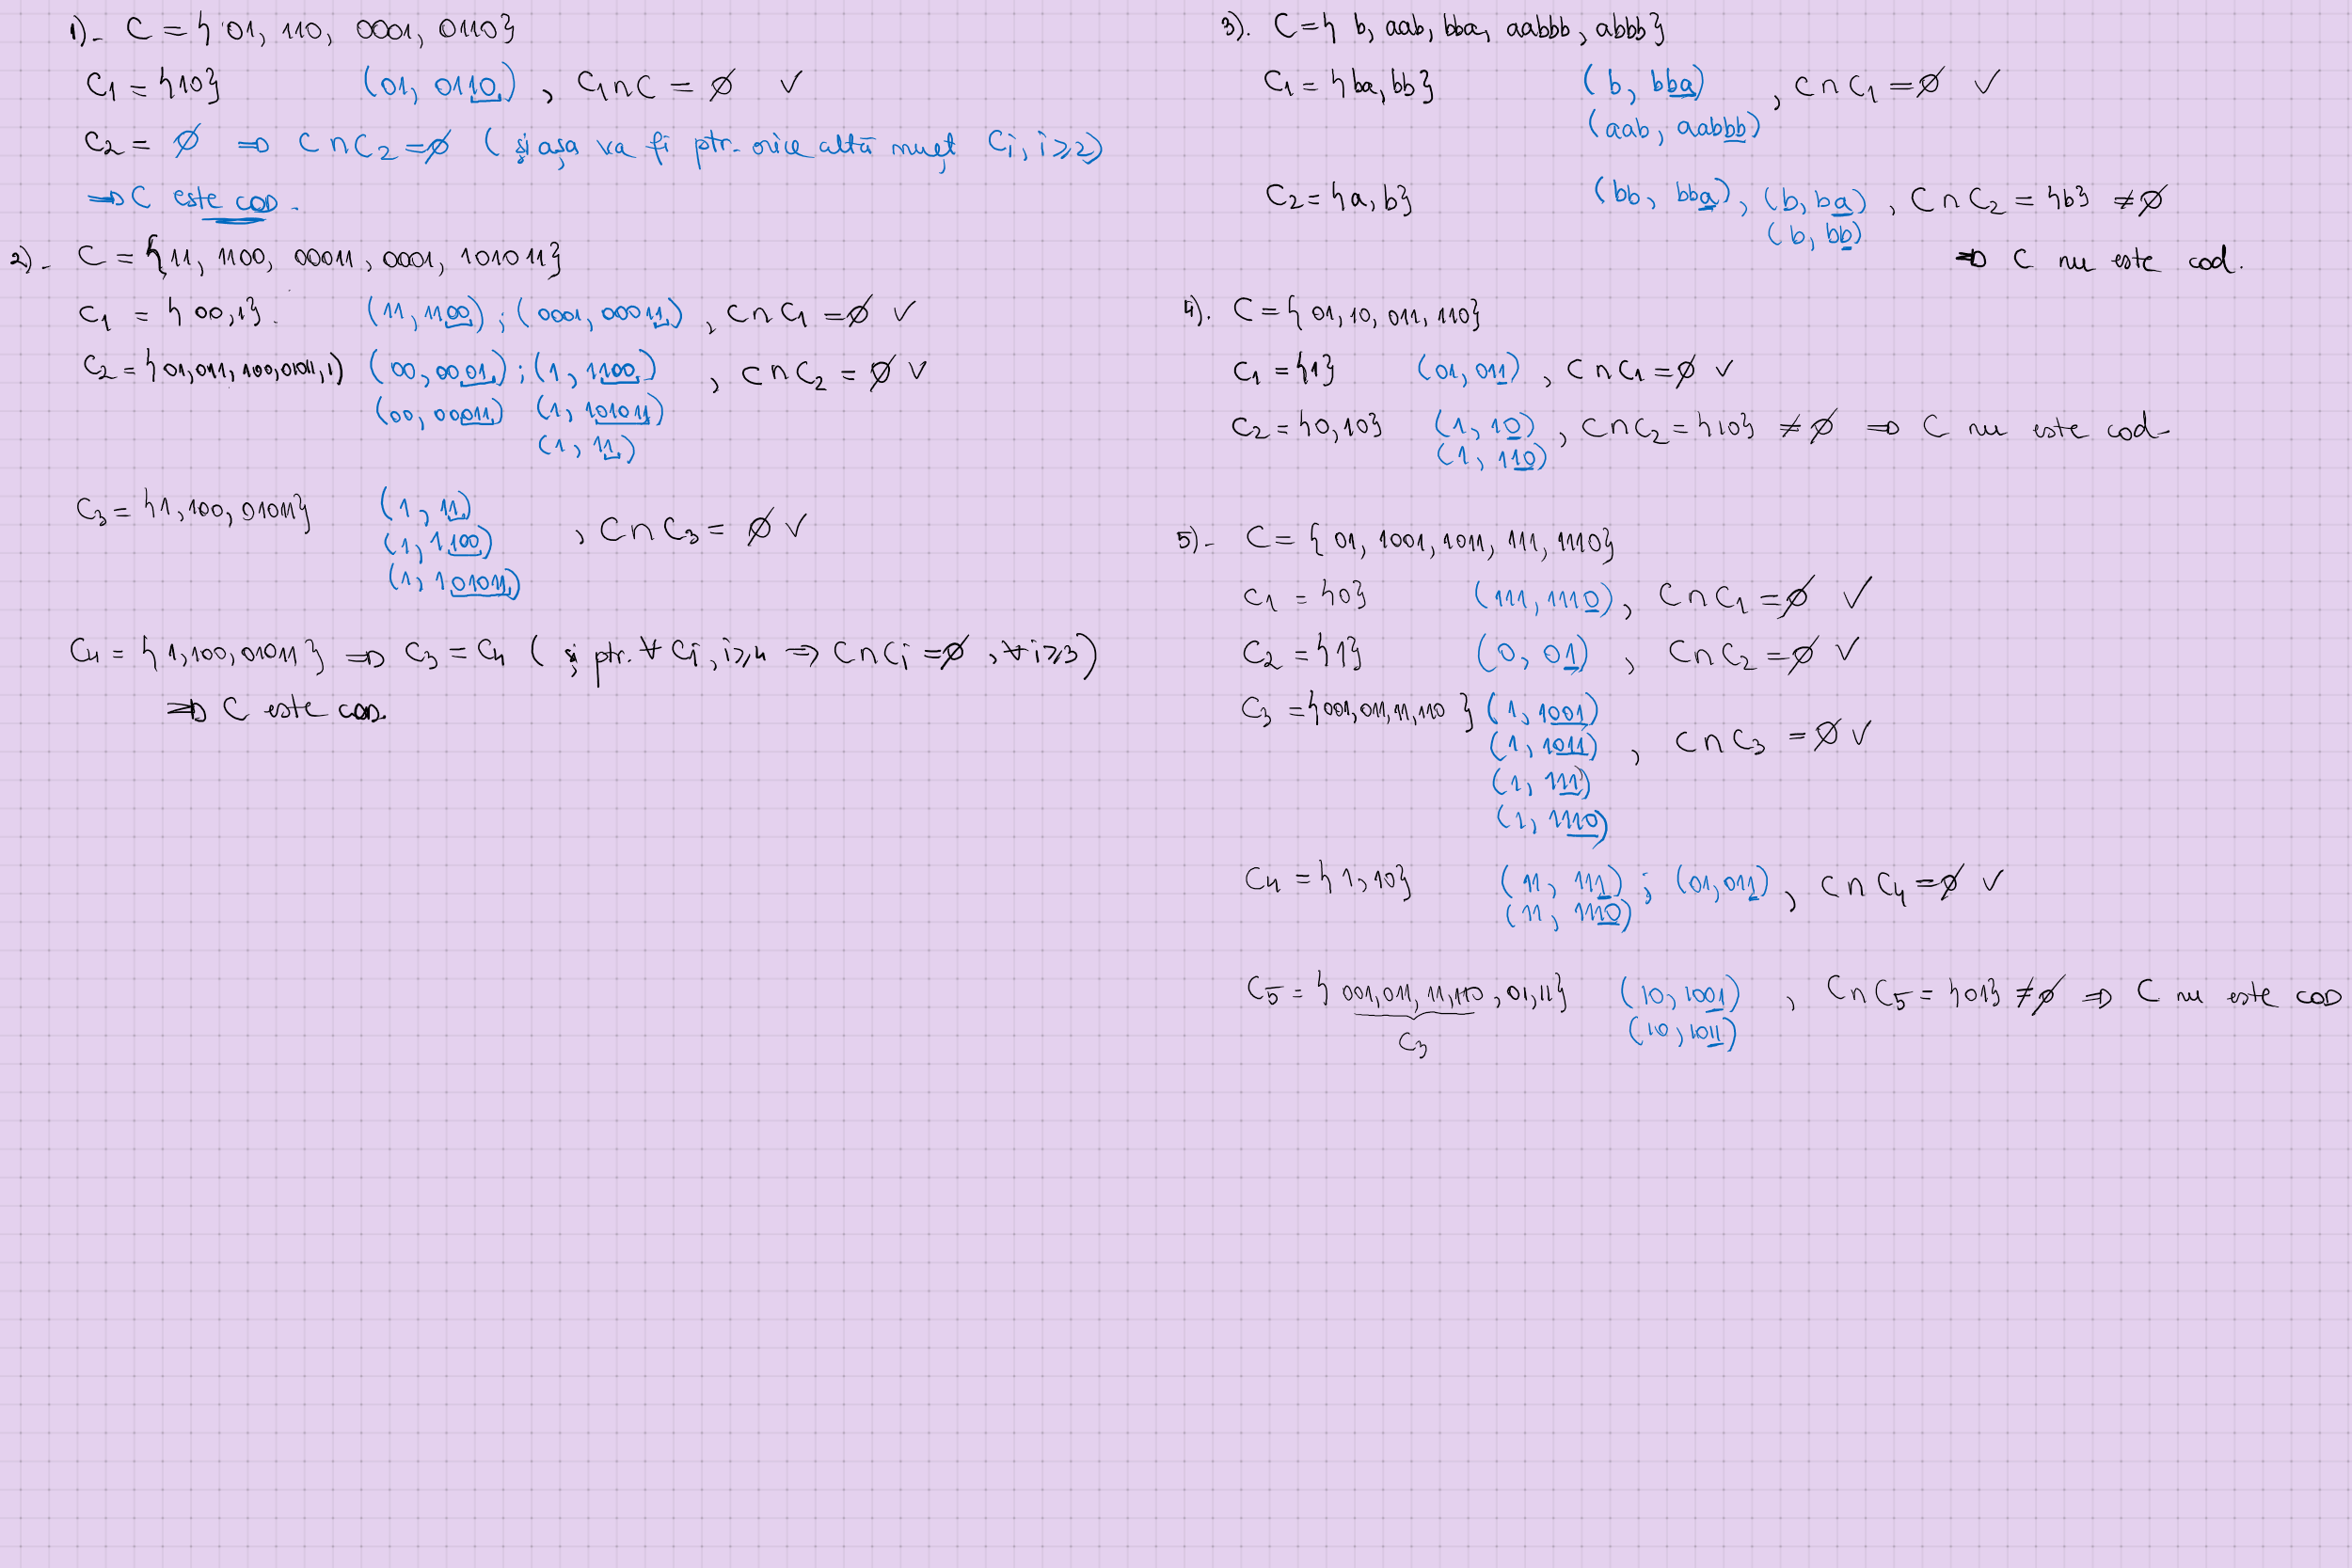 1). C = { 01, 110, 0001, 0110}
C1 = {10} (01, 0110) , C1 ∩ C = ∅ ✓
C2 = ∅ ⇒ C ∩ C2 = ∅ ( și așa va fi ptr. orice altă mulț Ci, i⩾2)
⇒ C este cod.
2). C = {11, 1100, 00011, 0001, 101011}
C1 = {00,1}. (11, 1100) ; (0001, 00011) , C ∩ C1 = ∅ ✓
C2 = {01,011,100,01011,1} (00, 0001) ; (1, 1100) , C ∩ C2 = ∅ ✓
(00, 00011) (1, 101011)
(1, 11)
C3 = {1,100,01011} (1, 11)
(1, 1100) , C ∩ C3 = ∅ ✓
(1, 101011)
C4 = {1,100,01011} ⇒ C3 = C4 ( și ptr. ∀ Ci, i⩾4 ⇒ C ∩ Ci = ∅, ∀ i⩾3)
⇒ C este cod.
3). C = { b, aab, bba, aabbb, abbb}
C1 = {ba, bb} (b, bba) , C ∩ C1 = ∅ ✓
(aab, aabbb)
C2 = {a, b} (bb, bba), (b, ba) , C ∩ C2 = {b} ≠ ∅
(b, bb)
⇒ C nu este cod.
4). C = { 01, 10, 011, 110}
C1 = {1} (01, 011) , C ∩ C1 = ∅ ✓
C2 = {0, 10} (1, 10) , C ∩ C2 = {10} ≠ ∅ ⇒ C nu este cod.
(1, 110)
5). C = { 01, 1001, 1011, 111, 1110}
C1 = {0} (111, 1110) , C ∩ C1 = ∅ ✓
C2 = {1} (0, 01) , C ∩ C2 = ∅ ✓
C3 = {001,011,11,110 } (1, 1001)
(1, 1011) , C ∩ C3 = ∅ ✓
(1, 111)
(1, 1110)
C4 = {1, 10} (11, 111) ; (01, 011) , C ∩ C4 = ∅ ✓
(11, 1110)
C5 = { 001,011, 11,110 , 01, 11} (10, 1001) , C ∩ C5 = {01} ≠ ∅ ⇒ C nu este cod
C3 (10, 1011)